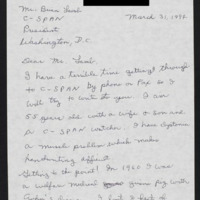 Mr. Brian Lamb
C-SPAN
President
Washington, D.C.
March 31, 1992
Dear Mr. Lamb:
I have a terrible time getting through
to C-SPAN by phone or Fax so I
will try to write to you. I am
55 years old with a wife & son and
a C-SPAN watcher. I have
a muscle problem which makes
handwriting difficult.
Getting to the point! In 1960 I was
a welfare